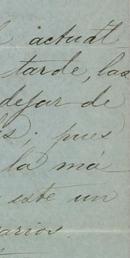 actual
tarde, las
dejar de
; pues
la má
este un
arios.